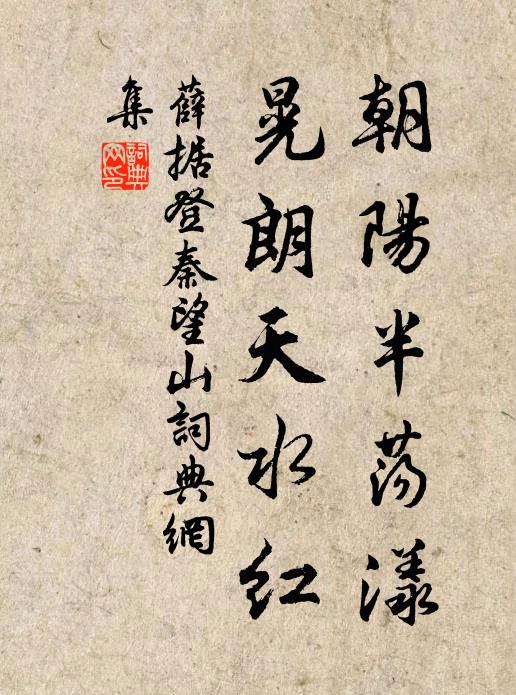 朝陽半蕩漾
晃朗天水紅
薛据登秦望山詞典網
集
詞典網印